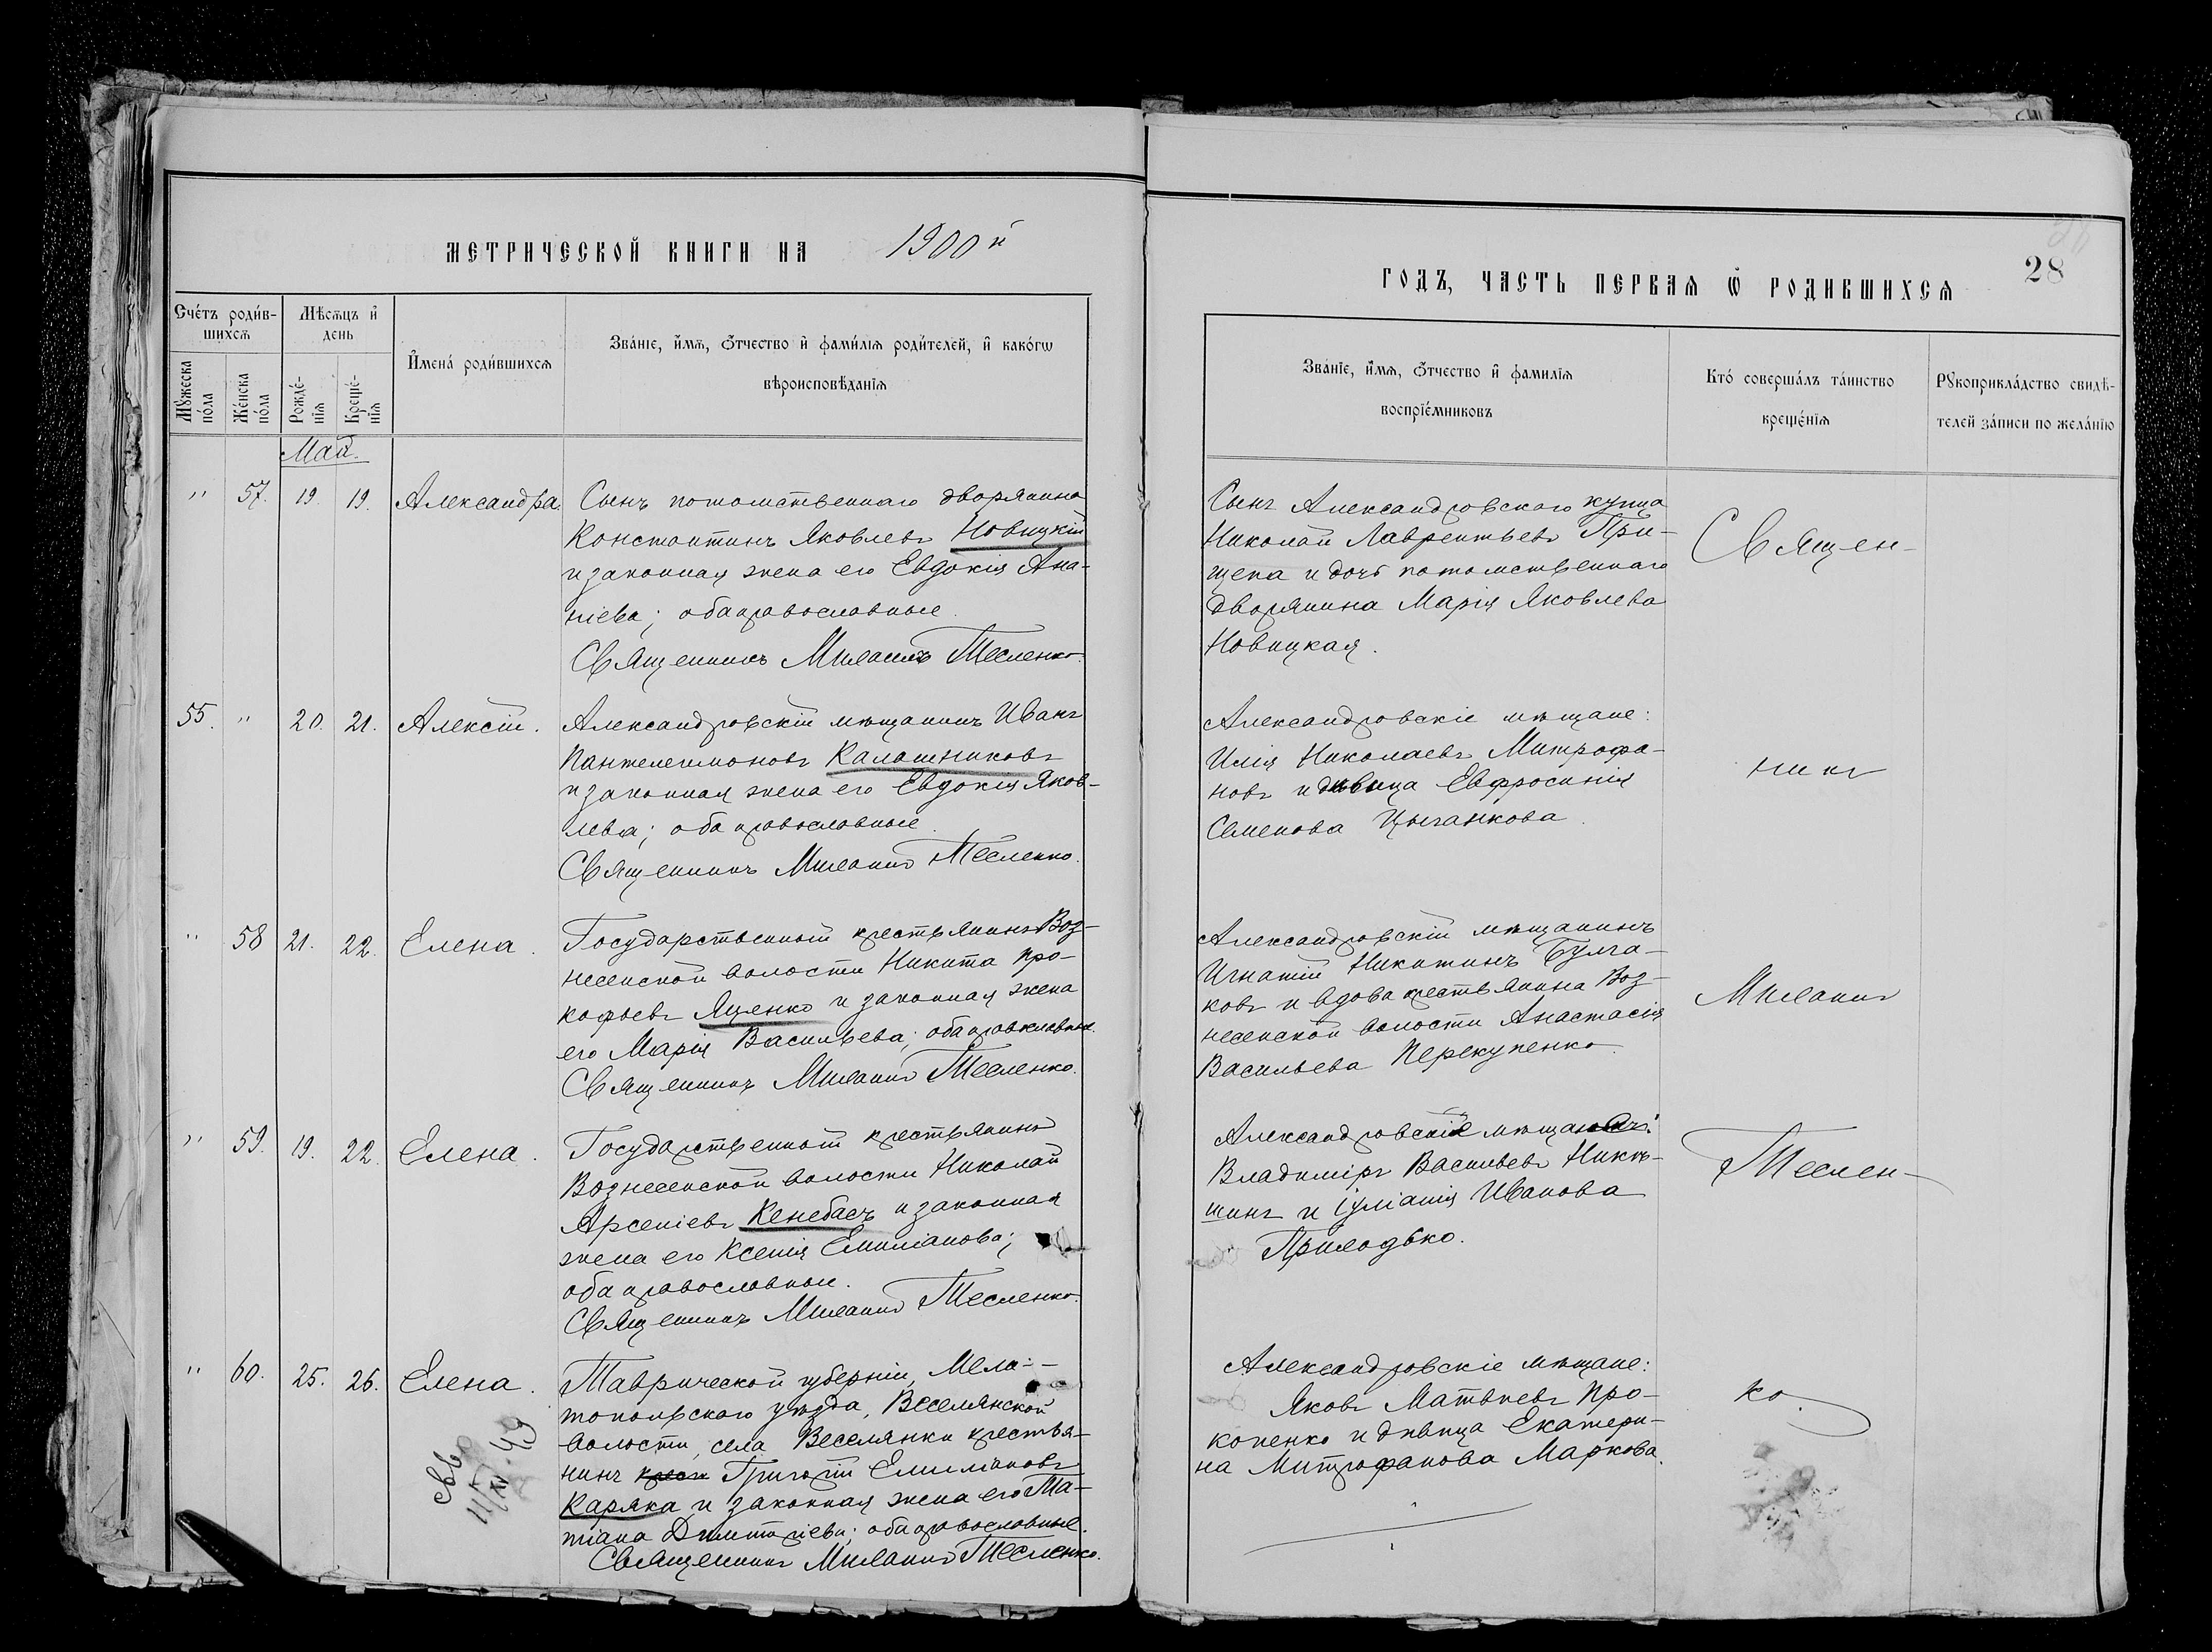 МЕТРИЧЕСКОЙ КНИГИ НА 1900й
Сче́тъ роди́в-
шихсѧ
Мѣ́сѧцъ и҆
день
Мꙋ́жеска
по́ла
Же́нска
по́ла
Рожде́-
нїѧ
Креще́-
нїѧ
И҆мена̀ роди́вшихсѧ
Зва́нїе, и҆́мѧ, ѻ҆́тчество и҆ фами́лїѧ роди́телей, и҆ како́гѡ
вѣроисповѣ́данїѧ
Май.
" 57. 19. 19. Александра.
Сынъ потомственнаго дворянина
Константинъ Яковлевъ Новицкій
и законная жена его Евдокія Ана-
ніева; оба православные.
Священникъ Михаилъ Тесленко.
55. " 20. 21. Алексій.
Александровскій мѣщанинъ Иванъ
Пантелеимоновъ Калашниковъ
и законная жена его Евдокія Яков-
лева; оба православные.
Священникъ Михаилъ Тесленко.
" 58 21. 22. Елена.
Государственный крестьянинъ Воз-
несенской волости Никита Про-
кофьевъ Яценко и законная жена
его Марія Васильева; оба православные.
Священникъ Михаилъ Тесленко.
" 59. 19. 22. Елена.
Государственный крестьянинъ
Вознесенской волости Николай
Арсеніевъ Кенебасъ и законная
жена его Ксенія Емиліанова;
оба православные.
Священникъ Михаилъ Тесленко.
" 60. 25. 26. Елена.
Таврической губерніи, Мели-
топольскаго уѣзда, Веселянской
волости, села Веселянки крестья-
нинъ Григорій Емиліановъ
Каряка и законная жена его Та-
тіана Димитріева; оба православные.
Священникъ Михаилъ Тесленко.
ГОДЪ, ЧАСТЬ ПЕРВАѦ Ѽ РОДИВШИХСѦ
28
Зва́нїе, и҆́мѧ, ѻ҆́тчество и҆ фами́лїѧ
воспрїе́мниковъ
Кто̀ соверша́лъ та́инство
креще́нїѧ
Рꙋкоприкла́дство свидѣ́-
телей за́писи по жела́нїю
Сынъ Александровскаго купца
Николай Лаврентьевъ При-
щепа и дочь потомственнаго
дворянина Марія Яковлева
Новицкая.
Священ-
Александровскіе мѣщане:
Илія Николаевъ Митрофа-
новъ и дѣвица Евфросинія
Семенова Цыганкова.
никъ
Александровскій мѣщанинъ
Игнатій Никитинъ Булга-
ковъ и вдова крестьянина Воз-
несенской волости Анастасія
Васильева Перекупенко.
Михаилъ
Александровскіе мѣщане:
Владиміръ Васильевъ Никѣ-
шинъ и Іуліанія Иванова
Приходько.
Теслен-
Александровскіе мѣщане:
Яковъ Матвѣевъ Про-
копенко и дѣвица Екатери-
на Митрофанова Маркова.
ко.